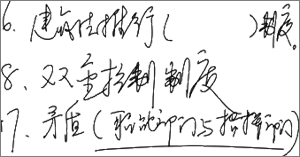 6、建筑法推行(    )制度。
8、双重控制制度
17、矛盾(职能部门与指挥部门)